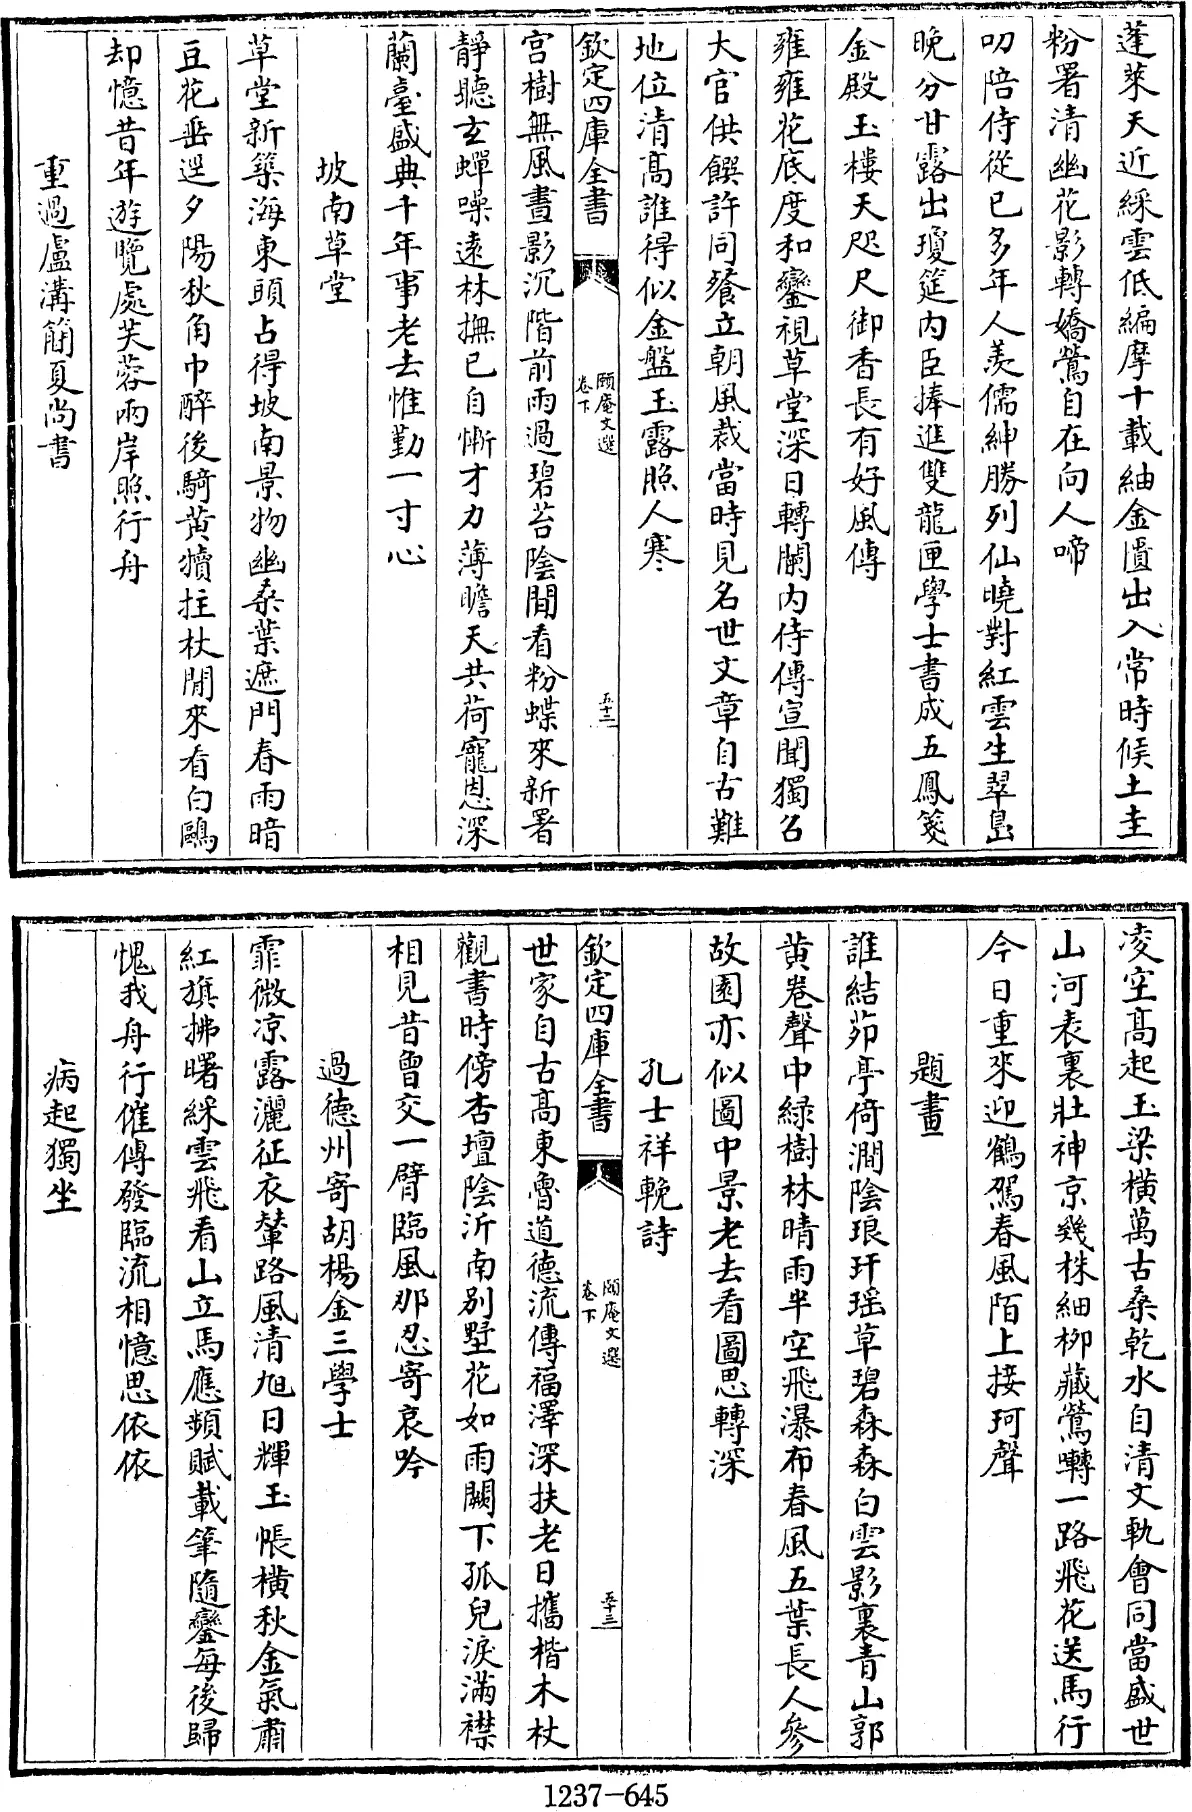 蓬萊天近綵雲低編摩十載紬金匱出入常時候土圭
粉署清幽花影轉嬌鶯自在向人啼
叨陪侍從已多年人羨儒紳勝列仙曉對紅雲生翠島
晚分甘露出瓊筵内臣捧進雙龍匣學士書成五鳳箋
金殿玉樓天咫尺御香長有好風傳
雍雍花底度和鑾視草堂深日轉闌内侍傳宣聞獨召
大官供饌許同餐立朝風裁當時見名世文章自古難
地位清髙誰得似金盤玉露照人寒
欽定四庫全書
頤庵文選
卷下
五十二
宫樹無風晝影沉階前雨過碧苔陰閒看粉蝶來新署
靜聽玄蟬噪遠林撫已自慚才力薄瞻天共荷寵恩深
蘭臺盛典千年事老去惟勤一寸心
坡南草堂
草堂新築海東頭占得坡南景物幽桑葉遮門春雨暗
豆花垂逕夕陽秋角巾醉後騎黄犢拄杖閒來看白鷗
却憶昔年遊覽處芙蓉兩岸照行舟
重過盧溝簡夏尚書
凌空髙起玉梁橫萬古桑乾水自清文軌會同當盛世
山河表裏壯神京幾株細柳藏鶯囀一路飛花送馬行
今日重來迎鶴駕春風陌上接珂聲
題畫
誰結茆亭倚澗陰琅玕瑶草碧森森白雲影裏青山郭
黄卷聲中緑樹林晴雨半空飛瀑布春風五葉長人參
故園亦似圖中景老去看圖思轉深
孔士祥輓詩
欽定四庫全書
頤庵文選
卷下
五十三
世家自古髙東魯道德流傳福澤深扶老日攜楷木杖
觀書時傍杏壇陰沂南别墅花如雨闕下孤兒淚滿襟
相見昔曾交一臂臨風那忍寄哀吟
過德州寄胡楊金三學士
霏微凉露灑征衣輦路風清旭日輝玉帳橫秋金氣肅
紅旗拂曙綵雲飛看山立馬應頻賦載筆隨鑾每後歸
愧我舟行催傳發臨流相憶思依依
病起獨坐
1237-645